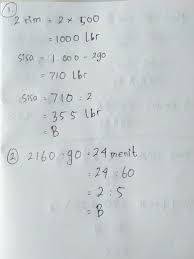 1
2 rim = 2 x 500
= 1000 lbr
sisa = 1.000 - 290
= 710 lbr
sisa = 710 : 2
= 355 lbr
= B
2 2160 : 90 = 24 menit
= 24 : 60
= 2 : 5
= B